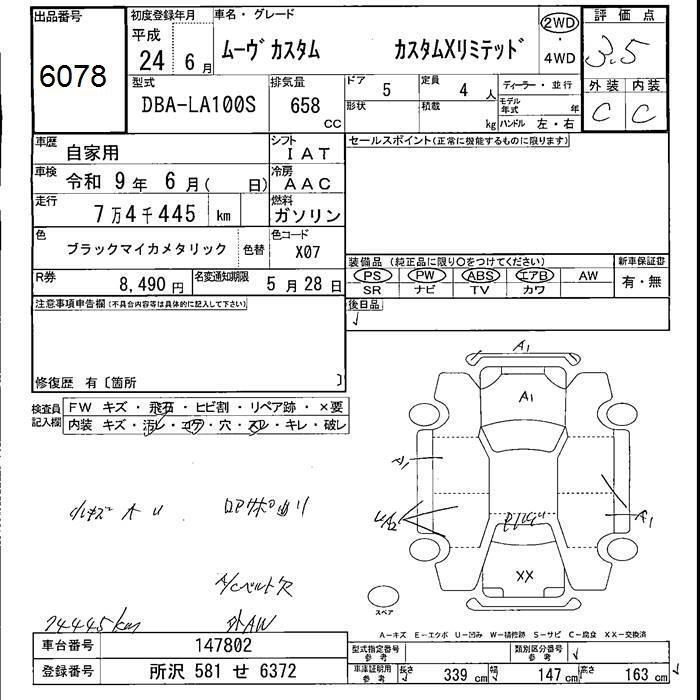 出品番号
6078
初度登録年月
平成
24 6月
車名・グレード
ムーヴ カスタム カスタムXリミテッド
2WD
4WD
評価点
3.5
型式
DBA-LA100S
排気量
658
cc
ドア
5
定員
4人
形状
積載
kg
ディーラー・並行
モデル年式 年
ハンドル 左・右
外装 内装
C C
車歴
自家用
シフト
IAT
車検
令和 9年 6月( 日)
冷房
AAC
走行
7万4千445 km
燃料
ガソリン
色
ブラックマイカメタリック
色替
色コード
X07
R券
8,490円
名変通知期限
5月28日
セールスポイント(正常に機能するものに限ります)
装備品 (純正品に限り○をつけてください)
PS PW ABS エアB AW
SR ナビ TV カワ
新車保証書
有・無
後日品
注意事項申告欄(不具合内容等は具体的に記入して下さい)
修復歴 有〔箇所 〕
検査員記入欄
FW キズ・飛石・ヒビ割・リペア跡・×要
内装 キズ・汚レ・コゲ・穴・スレ・キレ・破レ
A1
A1
A1
A1
UA2
XX
スペア
小キズ 大 U
A/Cベルト欠
外AW
74445km
A-キズ E-エクボ U-凹み W-補修跡 S-サビ C-腐食 XX-交換済
車台番号
147802
登録番号
所沢 581 せ 6372
型式指定番号
参考
類別区分番号
参考
車庫証明用
参考
長さ 339 cm 幅 147 cm 高さ 163 cm